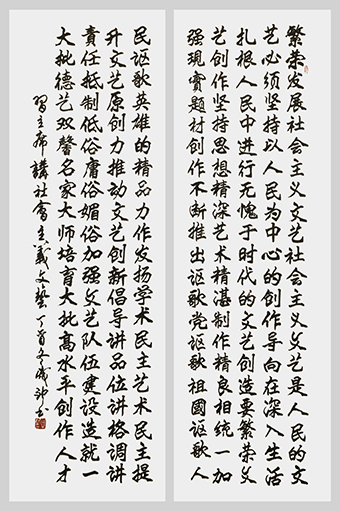 繁荣发展社会主义文艺社会主义文艺是人民的文
艺必须坚持以人民为中心的创作导向在深入生活
扎根人民中进行无愧于时代的文艺创造要繁荣文
艺创作坚持思想精深艺术精湛制作精良相统一加
强现实题材创作不断推出讴歌党讴歌祖國讴歌人
民讴歌英雄的精品力作发扬学术民主艺术民主提
升文艺原创力推动文艺创新倡导讲品位讲格调讲
責任抵制低俗庸俗媚俗加强文艺队伍建设造就一
大批德艺双馨名家大师培育大批高水平创作人才
习主席講社會主義文藝丁酉冬